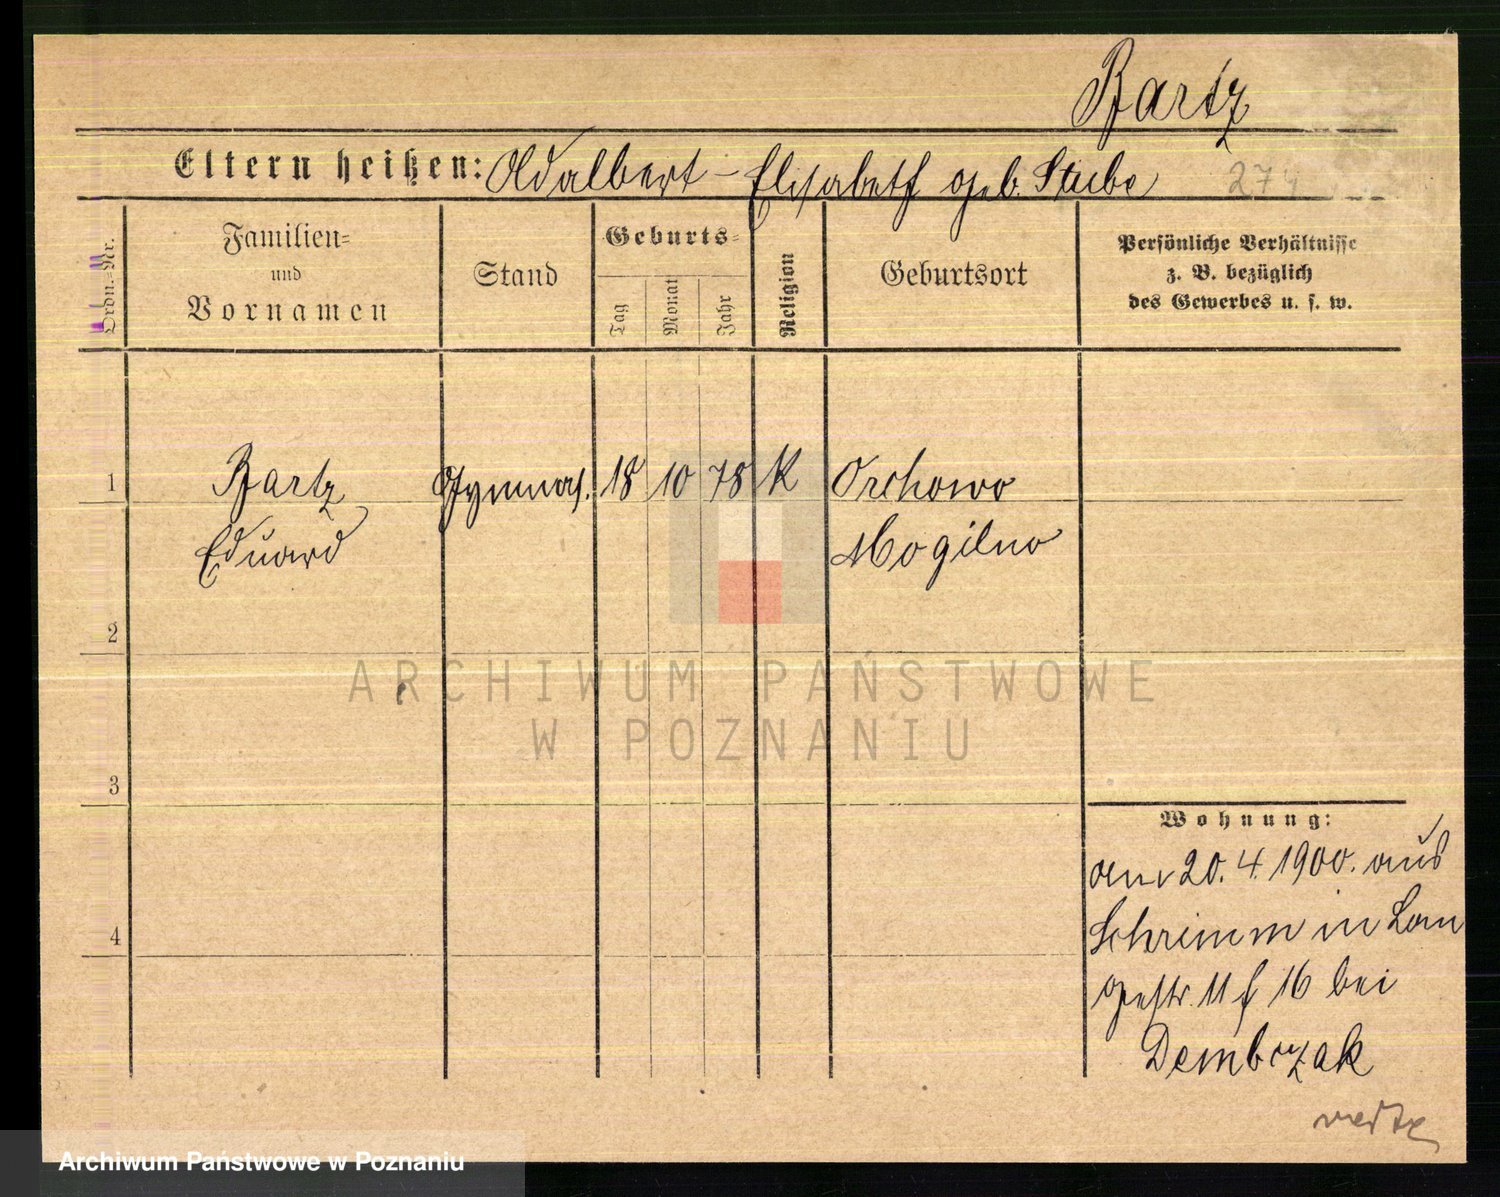 Bartz
Eltern heißen: Adalbert - Elisabeth geb. Stube
274
Ordn.=Nr.
Familien=
und
Vornamen
Stand
Geburts=
Tag
Monat
Jahr
Religion
Geburtsort
Persönliche Verhältnisse
z. B. bezüglich
des Gewerbes u. s. w.
1
Bartz
Eduard
Gymnas.
18
10
78
K
Orchowo
Mogilno
2
3
4
Wohnung:
am 20. 4. 1900. aus
Schrimm in Lan
gestr. 11 f 16 bei
Dembczak
ARCHIWUM PAŃSTWOWE
W POZNANIU
Archiwum Państwowe w Poznaniu